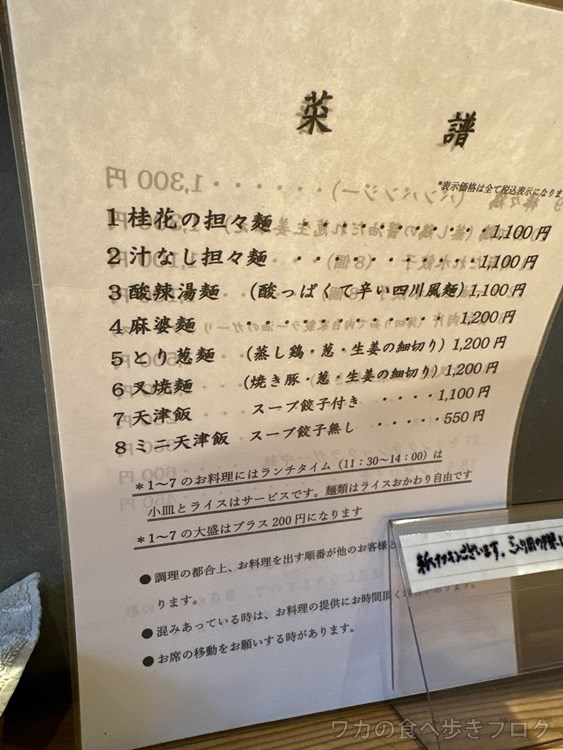 菜 譜
*表示価格は全て税込表示になりま
1 桂花の担々麺 ・・・・・・・・・・・1,100円
2 汁なし担々麺 ・・・・・・・・・・1,100円
3 酸辣湯麺 (酸っぱくて辛い四川風麺) 1,100円
4 麻婆麺 ・・・・・・・・・・・・1,200円
5 とり葱麺 (蒸し鶏・葱・生姜の細切り) 1,200円
6 叉焼麺 (焼き豚・葱・生姜の細切り) 1,200円
7 天津飯 スープ餃子付き ・・・・1,100円
8 ミニ天津飯 スープ餃子無し ・・・・550円
*1~7のお料理にはランチタイム(11:30~14:00)は
小皿とライスはサービスです。麺類はライスおかわり自由です
*1~7の大盛はプラス200円になります
●調理の都合上、お料理を出す順番が他のお客様と
ります。
●混みあっている時は、お料理の提供にお時間頂く
●お席の移動をお願いする時があります。
紙ナフキンございます。
ワカの食べ歩きブログ